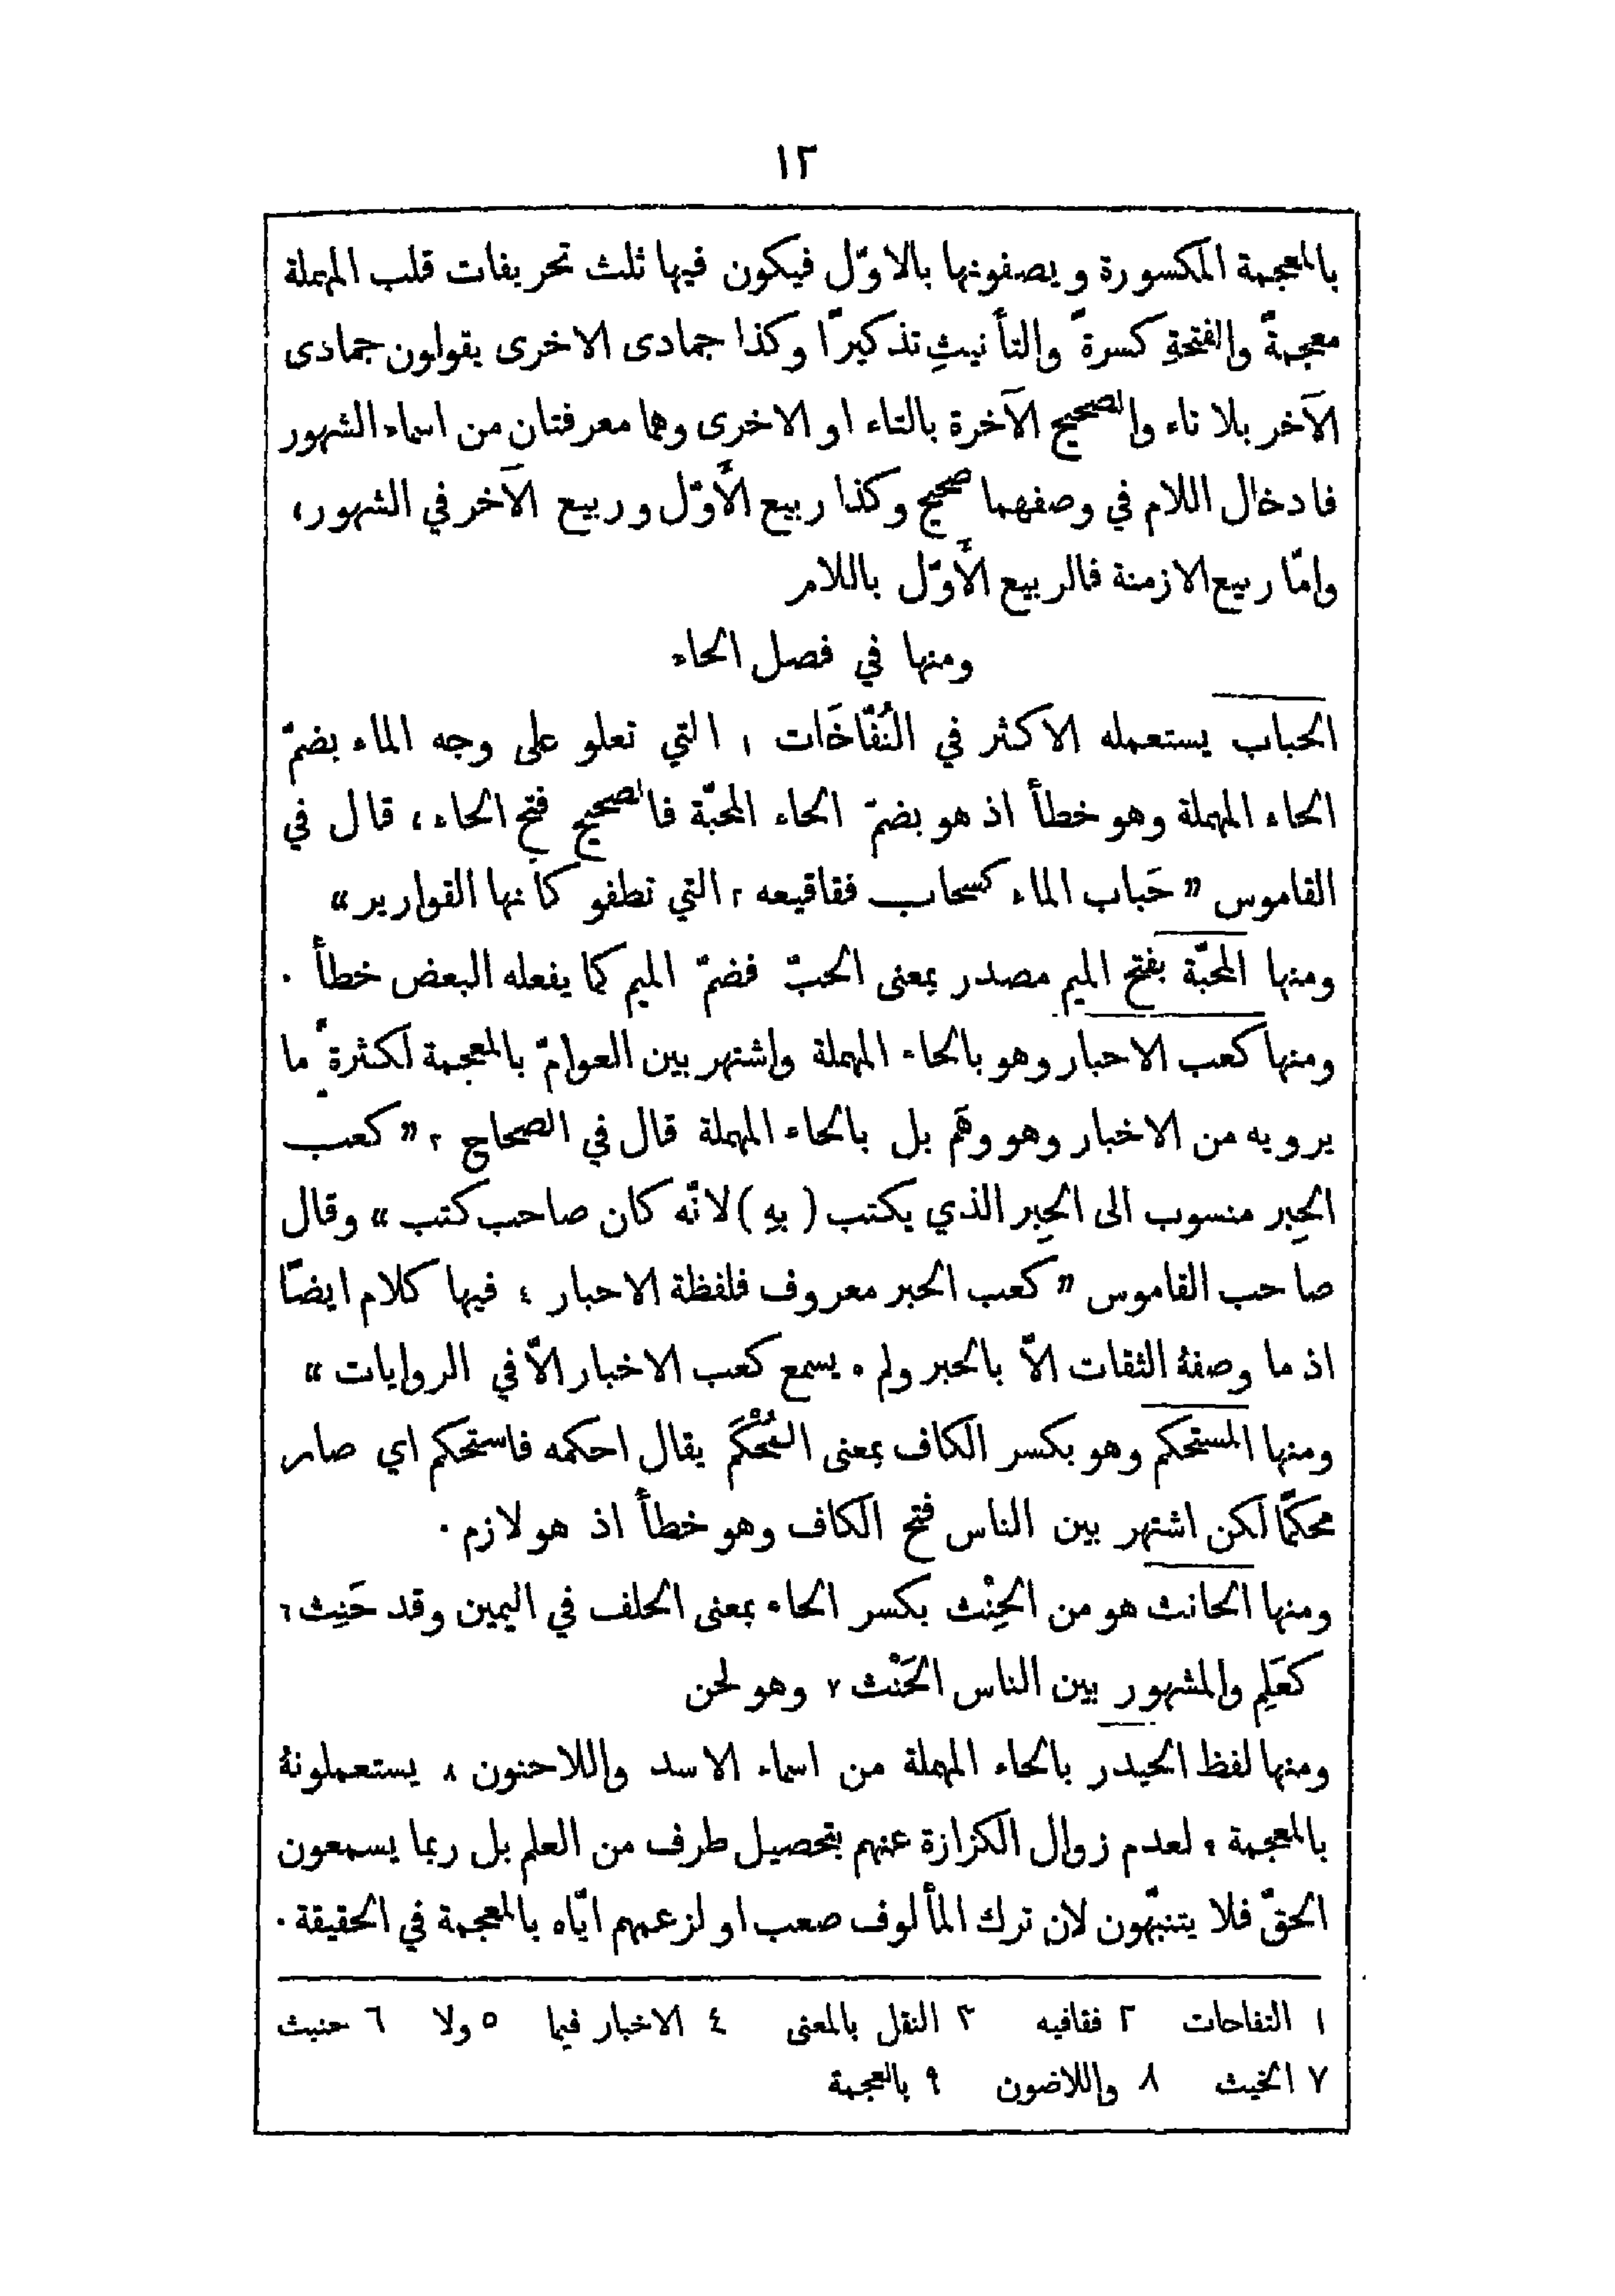 ١٢
بالمعجمة المكسورة ويصفونها بالاوّل فيكون فيها ثلث تحريفات قلب المهملة
معجمةً والفتحةِ كسرةً والتأنيثِ تذكيرًا وكذا جمادى الاخرى يقولون جمادى
الآخر بلا تاء والصحيح الآخرة بالتاء او الاخرى وهما معرفتان من اسماء الشهور
فادخال اللام في وصفهما صحيح وكذا ربيع الأوّل وربيع الآخر في الشهور،
وامّا ربيع الازمنة فالربيع الأوّل باللام
ومنها في فصل الحاء
الحباب يستعمله الاكثر في النُفّاخَات ١ التي تعلو على وجه الماء بضمّ
الحاء المهملة وهو خطأ اذ هو بضمّ الحاء المحبّة فالصحيح فتح الحاء، قال في
القاموس » حَباب الماء كسحاب فقاقيعه ٢ التي تطفو كأنها القوارير «
ومنها المحبّة بفتح الميم مصدر بمعنى الحبّ فضمّ الميم كما يفعله البعض خطأ .
ومنها كعب الاحبار وهو بالحاء المهملة واشتهر بين العوامّ بالمعجمة لكثرة ما
يرويه من الاخبار وهو وهَم بل بالحاء المهملة قال في الصحاح ٣ » كعب
الحِبر منسوب الى الحِبر الذي يكتب ( بهِ ) لانّه كان صاحب كتب « وقال
صاحب القاموس » كعب الحبر معروف فلفظة الاحبار ٤ فيها كلام ايضًا
اذ ما وصفهُ الثقات الاّ بالحبر ولم ٥ يسمع كعب الاخبار الاّ في الروايات «
ومنها المستحكم وهو بكسر الكاف بمعنى المُحْكَم يقال احكمه فاستحكم اي صار
محكمًا لكن اشتهر بين الناس فتح الكاف وهو خطأ اذ هو لازم .
ومنها الحانث هو من الحِنْث بكسر الحاء بمعنى الحلف في اليمين وقد حَنِث ٦
كعَلِم والمشهور بين الناس الحَنْث ٧ وهو لحن
ومنها لفظ الحيدر بالحاء المهملة من اسماء الاسد واللاحنون ٨ يستعملونهُ
بالمعجمة ٩ لعدم زوال الكزازة عنهم بتحصيل طرف من العلم بل ربما يسمعون
الحقّ فلا يتنبّهون لان ترك المألوف صعب او لزعمهم ايّاه بالمعجمة في الحقيقة .
١ التفاحات ٢ فقافيه ٣ النقل بالمعنى ٤ الاخبار فيما ٥ ولا ٦ حنيث
٧ الخيث ٨ واللاضون ٩ بالعجمة